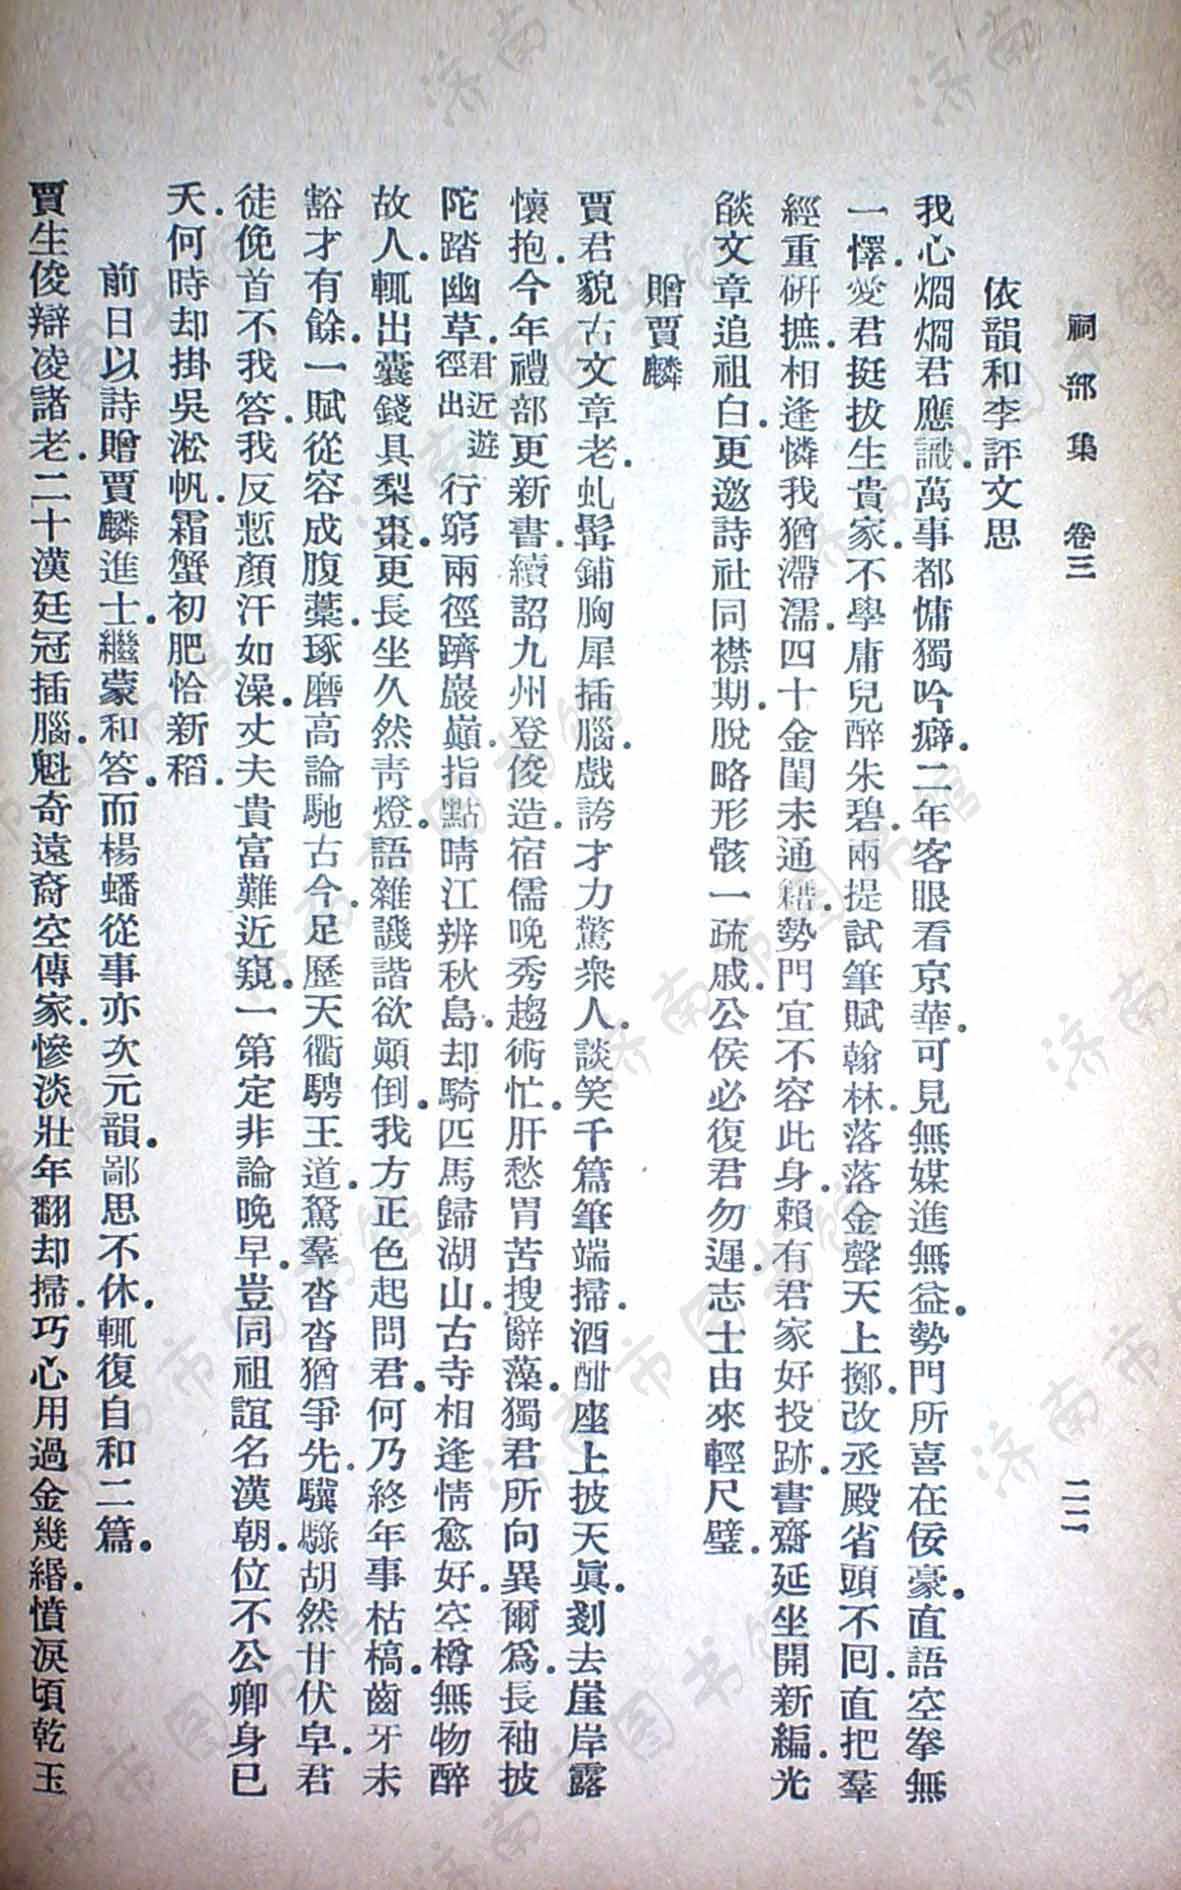 祠部集　卷三　二二
依韻和李評文思
我心烱烱君應識．萬事都慵獨吟癖．二年客眼看京華．可見無媒進無益．勢門所喜在佞豪．直語空拳無
一懌．愛君挺拔生貴家．不學庸兒醉朱碧．兩提試筆賦翰林．落落金聲天上擲．改丞殿省頭不回．直把羣
經重硏摭．相逢憐我猶滯濡．四十金閨未通籍．勢門宜不容此身．賴有君家好投跡．書齋延坐開新編．光
燄文章追祖白．更邀詩社同襟期．脫略形骸一疏戚．公侯必復君勿遲．志士由來輕尺璧．
贈賈麟
賈君貌古文章老．虬髯鋪胸犀插腦．戲誇才力驚衆人．談笑千篇筆端掃．酒酣座上披天眞．剗去崖岸露
懷抱．今年禮部更新書．續詔九州登俊造．宿儒晚秀趨術忙．肝愁胃苦搜辭藻．獨君所向異爾爲．長袖披
陀踏幽草．君近遊徑出行窮兩徑躋巖巓．指點晴江辨秋島．却騎匹馬歸湖山．古寺相逢情愈好．空樽無物醉
故人．輒出囊錢具梨棗．更長坐久然靑燈．語雜譏諧欲顚倒．我方正色起問君．何乃終年事枯槁．齒牙未
豁才有餘．一賦從容成腹藁．琢磨高論馳古今．足歷天衢騁王道．駑羣沓沓猶爭先．驥騄胡然甘伏皁．君
徒俛首不我答．我反慙顏汗如澡．丈夫貴富難近窺．一第定非論晚早．豈同祖誼名漢朝．位不公卿身已
夭．何時却掛吳淞帆．霜蟹初肥恰新稻．
前日以詩贈賈麟進士．繼蒙和答．而楊蟠從事亦次元韻．鄙思不休．輒復自和二篇．
賈生俊辯凌諸老．二十漢廷冠插腦．魁奇遠裔空傳家．慘淡壯年翻却掃．巧心用過金幾緡．憤淚頃乾玉